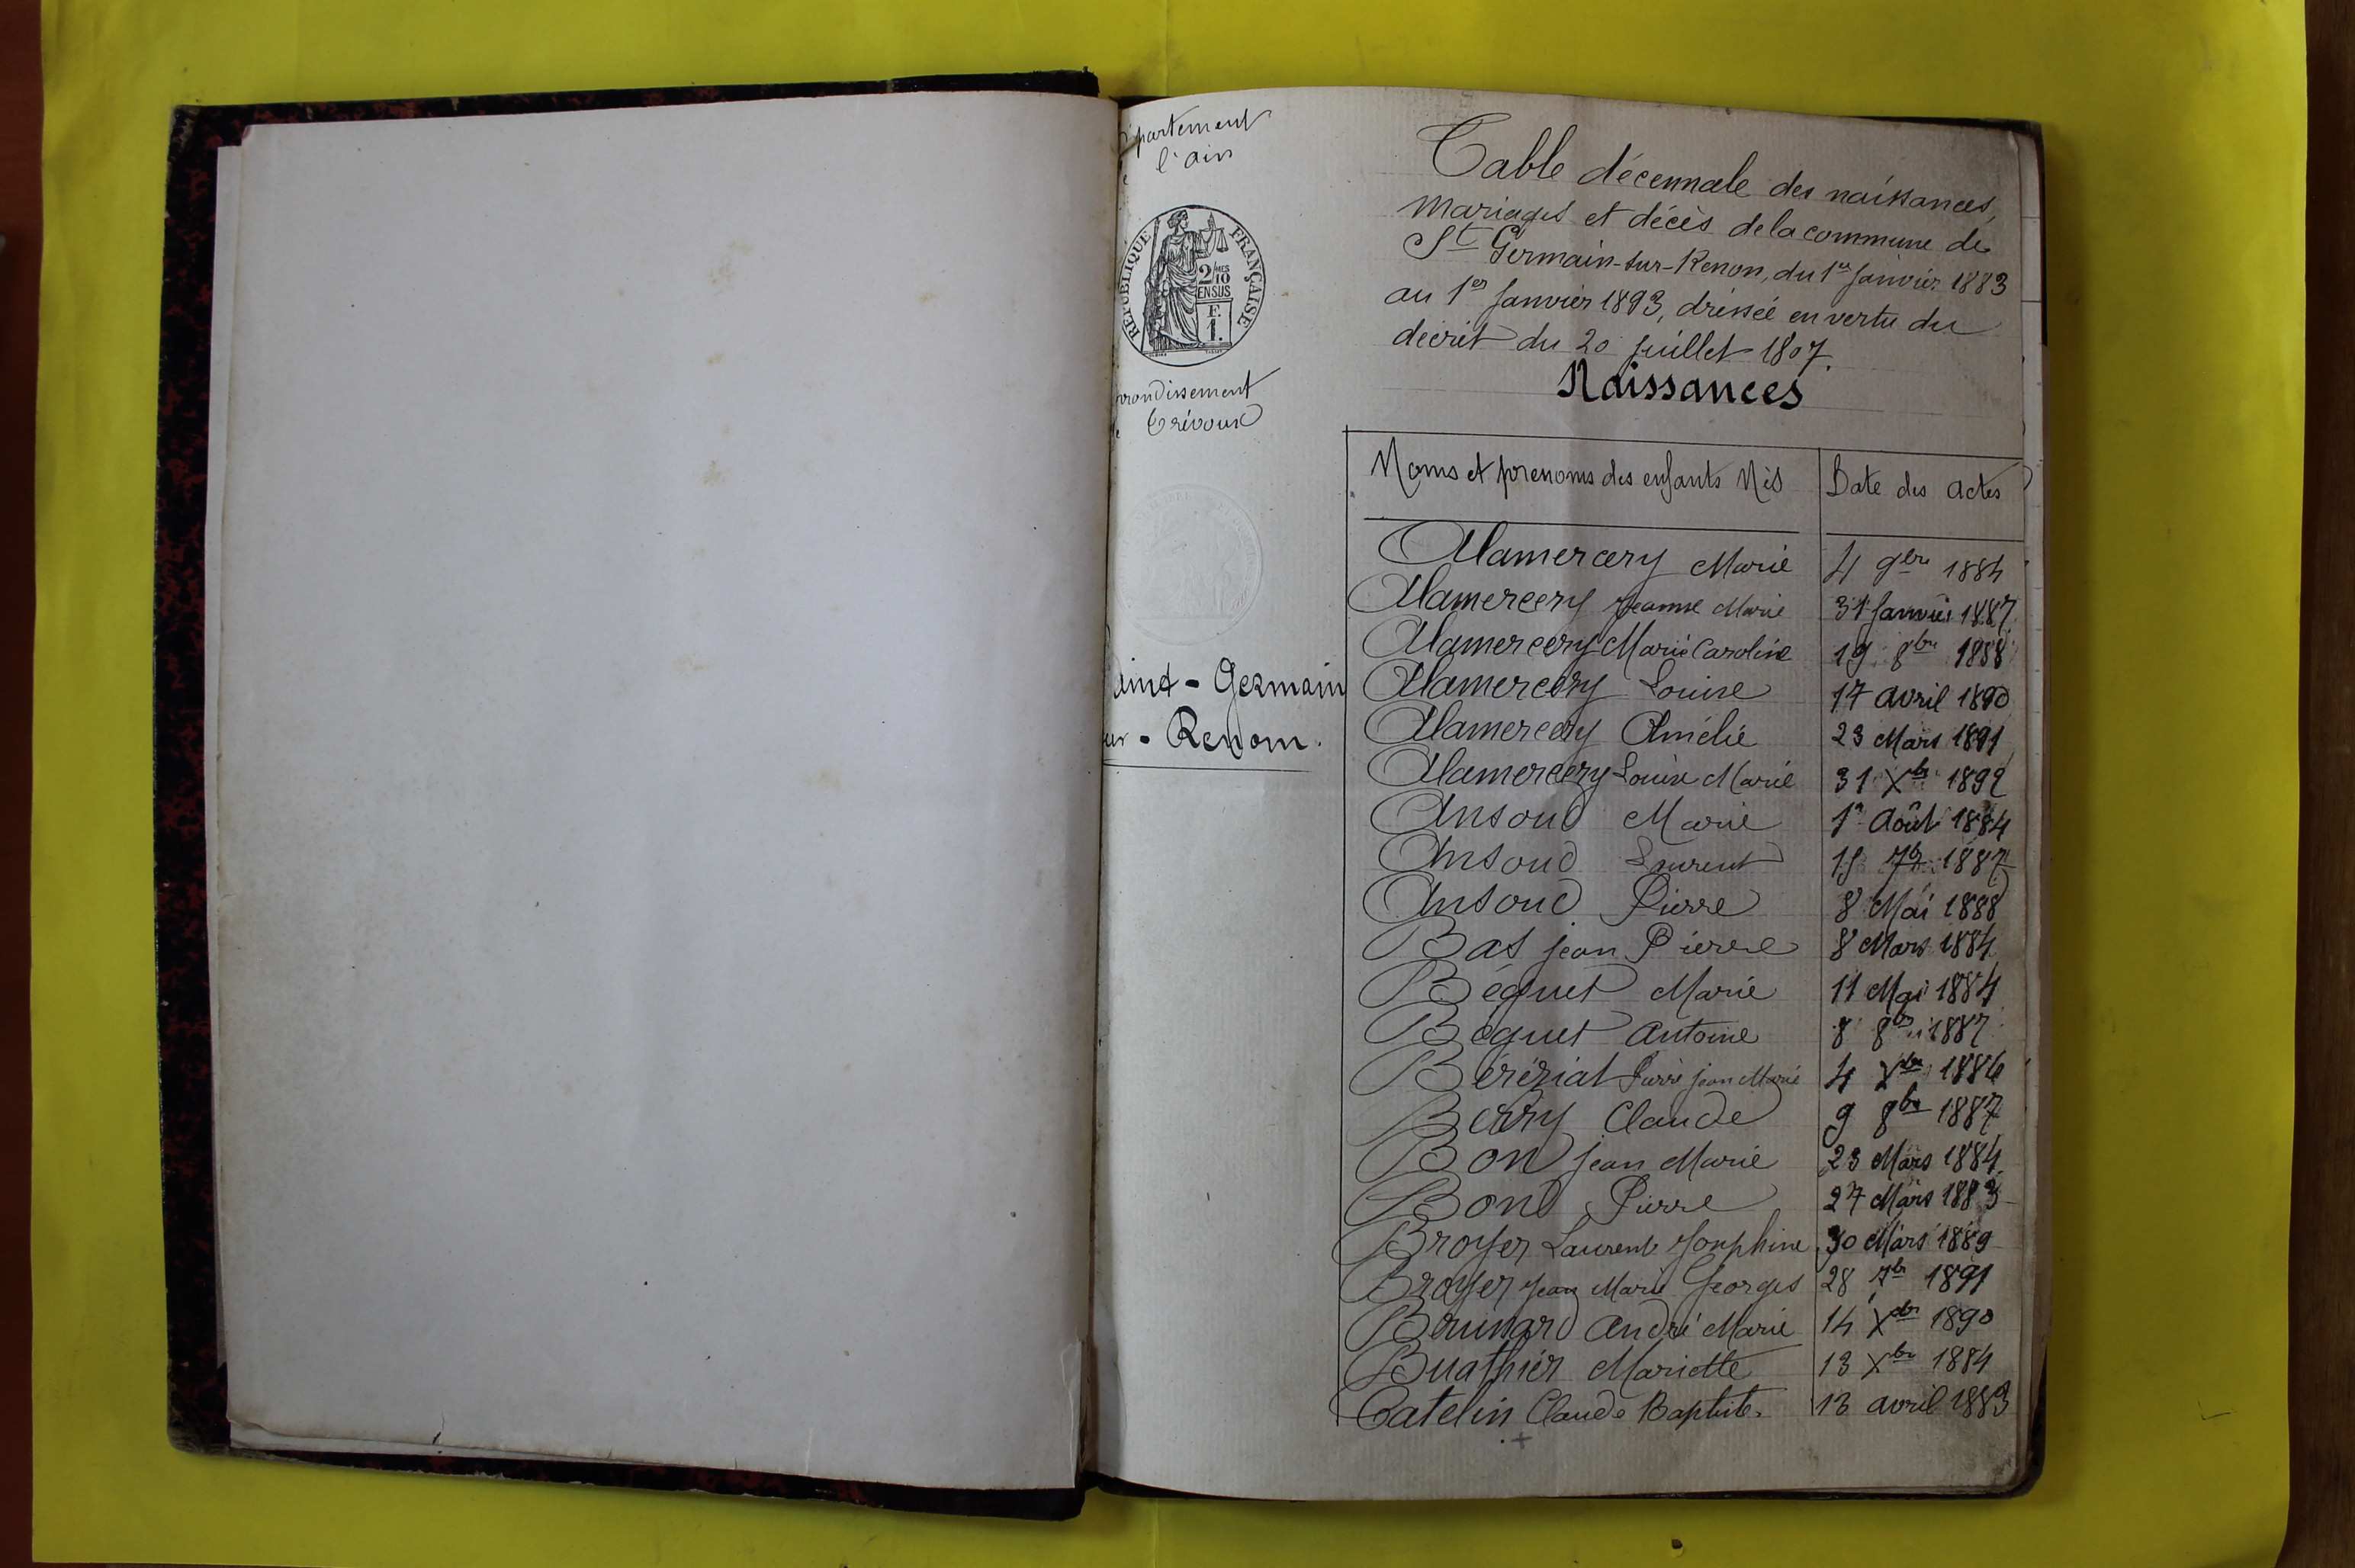 partement
l'ain
RÉPUBLIQUE FRANÇAISE
2/MES
10
EN SUS
E.
1.
rrondissement
Trévoux
aint - Germain
ur - Renom.
Table décennale des naissances,
mariages et décès de la commune de
St Germain-sur-Renon, du 1er Janvier 1883
au 1er Janvier 1893, dressée en vertu du
décrèt du 20 juillet 1807.
Naissances
Noms et prenoms des enfants Nés | Date des actes
Alamercery Marie | 4 9bre 1884
Alamercery Jeanne Marie | 31 Janvier 1887
Alamercery Marie Caroline | 19 8bre 1888
Alamercery Louise | 17 avril 1890
Alamercery Amélie | 23 Mars 1891
Alamercery Louise Marie | 31 Xbre 1892
Ansoud Marie | 1er Août 1884
Ansoud Laurent | 7bre 1887
Ansoud Pierre | 8 Mai 1888
Bas jean Pierre | 8 Mars 1884
Béguet Marie | 11 Mai 1884
Béguet Antoine | 8 8bre 1887
Béréziat Pierre jean Marie | 4 Xbre 1886
Berry Claude | 9 8bre 1887
Bon jean Marie | 23 Mars 1884
Bond Pierre | 27 Mars 1883
Broyer Laurent Josephine | 30 Mars 1889
Broyer Jean Marie Georges | 28 7bre 1891
Brunard André Marie | 14 Xbre 1890
Buathier Mariette | 13 Xbre 1884
Catelin Claude Baptiste. | 13 avril 1883